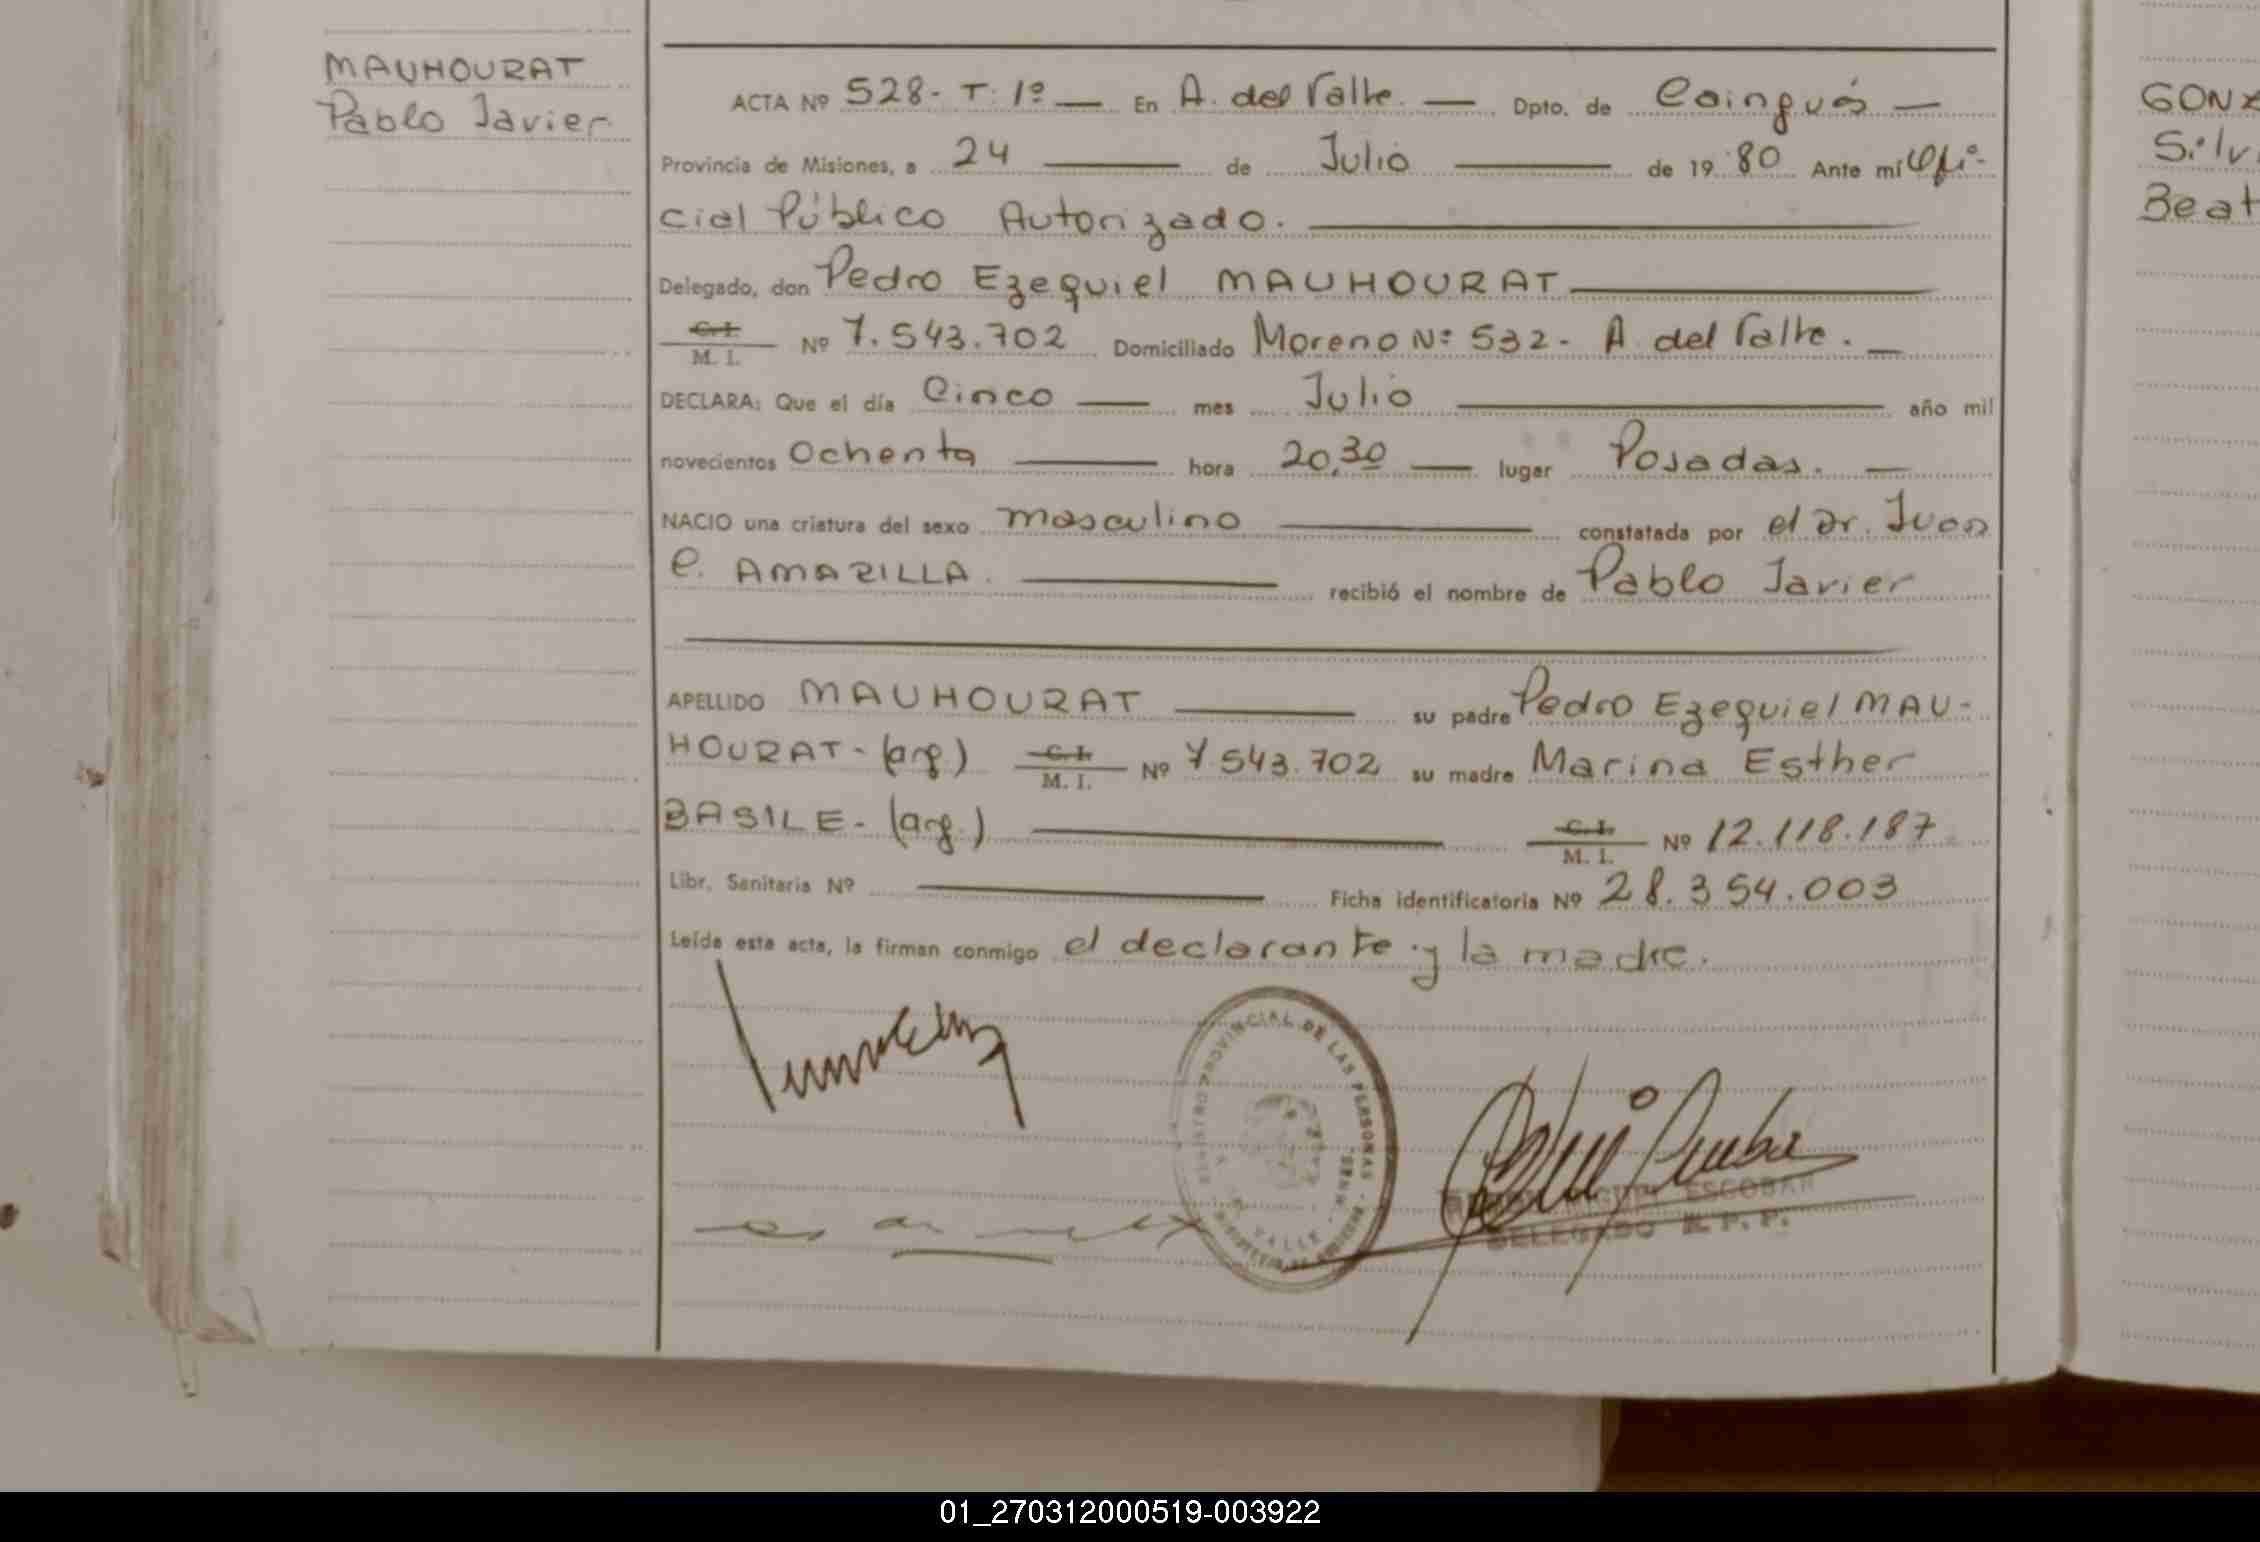 MAUHOURAT
Pablo Javier
ACTA Nº 528 - T. 1º — En A. del Valle. — Dpto. de Cainguás —
Provincia de Misiones, a 24 — de Julio — de 1980. Ante mí Ofi-
cial Público Autorizado.
Delegado, don Pedro Ezequiel MAUHOURAT
C. I.
M. I. Nº 7.543.702 Domiciliado Moreno Nº 532 - A. del Valle.
DECLARA: Que el día Cinco — mes Julio — año mil
novecientos Ochenta — hora 20,30 — lugar Posadas. —
NACIO una criatura del sexo masculino — constatada por el Dr. Juan
C. AMARILLA. — recibió el nombre de Pablo Javier
APELLIDO MAUHOURAT — su padre Pedro Ezequiel MAU-
HOURAT - (arg.) C. I. M. I. Nº 7.543.702 su madre Marina Esther
BASILE - (arg.) — C. I. M. I. Nº 12.118.187
Libr. Sanitaria Nº — Ficha identificatoria Nº 28.354.003
Leída esta acta, la firman conmigo el declarante y la madre.
REGISTRO PROVINCIAL DE LAS PERSONAS
VALLE
ESCOBAR
DELEGADO R. P. P.
GONZ
Silv
Beat
01_270312000519-003922